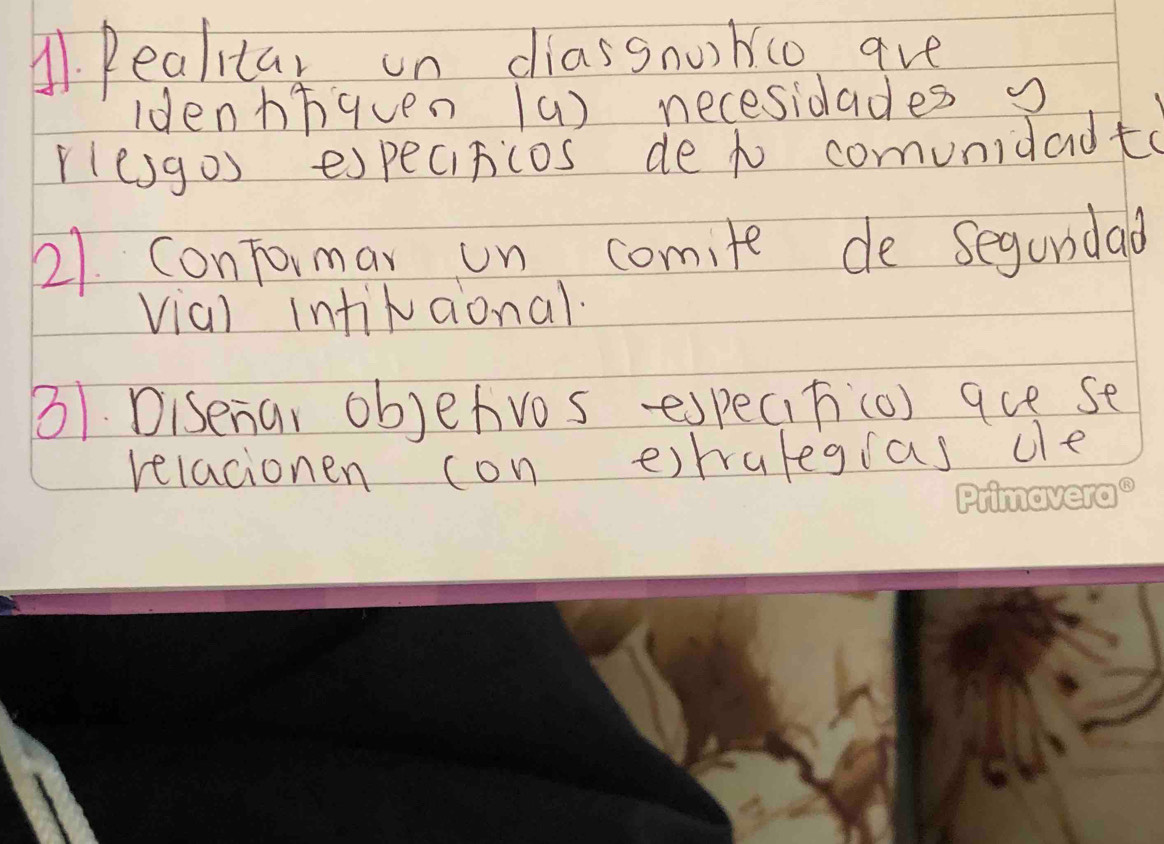 1). Realizar un diasgnostico que
identifiquen las necesidades y
riesgos especificos de la comunidad
2). Conformar un comite de seguridad
vial intitucional.
3). Diseñar objetivos especificos que se
relacionen con estrategias de
Primavera®